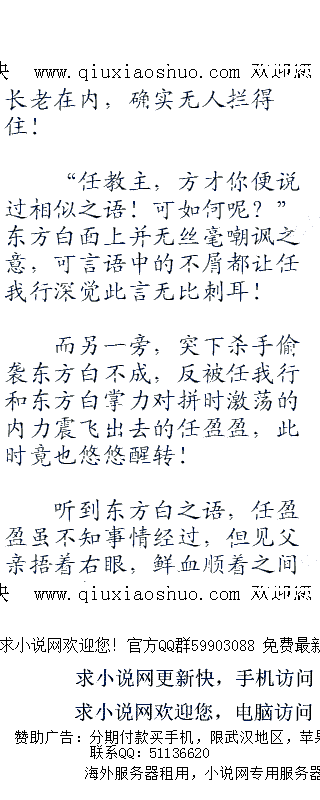 www.qiuxiaoshuo.com 欢迎您
长老在内，确实无人拦得
住！
“任教主，方才你便说
过相似之语！可如何呢？”
东方白面上并无丝毫嘲讽之
意，可言语中的不屑都让任
我行深觉此言无比刺耳！
而另一旁，突下杀手偷
袭东方白不成，反被任我行
和东方白掌力对拼时激荡的
内力震飞出去的任盈盈，此
时竟也悠悠醒转！
听到东方白之语，任盈
盈虽不知事情经过，但见父
亲捂着右眼，鲜血顺着之间
www.qiuxiaoshuo.com 欢迎您
求小说网欢迎您！官方QQ群59903088 免费最新
求小说网更新快，手机访问
求小说网欢迎您，电脑访问
赞助广告：分期付款买手机，限武汉地区，苹果
联系QQ：51136620
海外服务器租用，小说网专用服务器